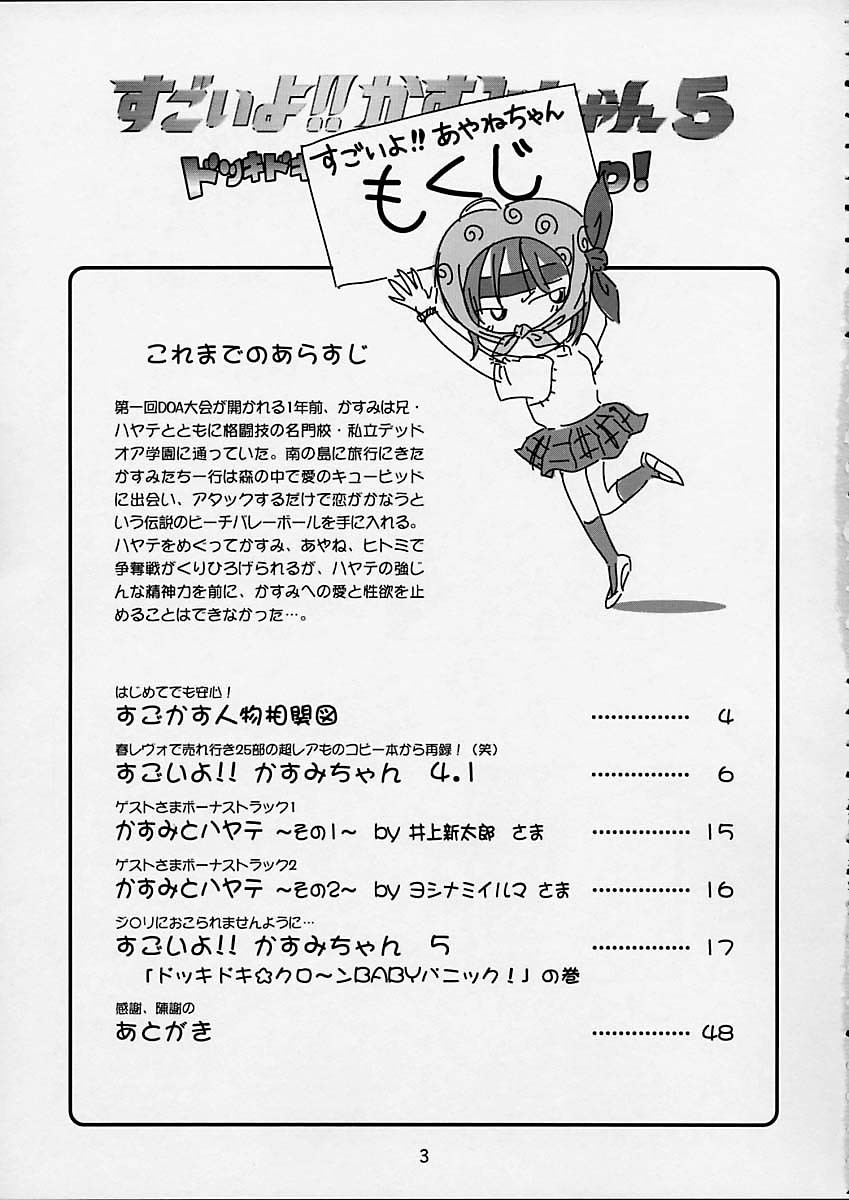 すごいよ!! かすみちゃん 5
ドッキドキ
!
すごいよ!! あやねちゃん
もくじ
これまでのあらすじ
第一回DOA大会が開かれる1年前、かすみは兄・
ハヤテとともに格闘技の名門校・私立デッド
オア学園に通っていた。南の島に旅行にきた
かすみたち一行は森の中で愛のキューピッド
に出会い、アタックするだけで恋がかなうと
いう伝説のビーチバレーボールを手に入れる。
ハヤテをめぐってかすみ、あやね、ヒトミで
争奪戦がくりひろげられるが、ハヤテの強じ
んな精神力を前に、かすみへの愛と性欲を止
めることはできなかった…。
はじめてでも安心!
すごかす人物相関図 …………… 4
春レヴォで売れ行き25部の超レアものコピー本から再録!(笑)
すごいよ!! かすみちゃん 4.1 …………… 6
ゲストさまボーナストラック1
かすみとハヤテ ～その1～ by 井上新太郎 さま …………… 15
ゲストさまボーナストラック2
かすみとハヤテ ～その2～ by ヨシナミイルマ さま …………… 16
ジ○リにおこられませんように…
すごいよ!! かすみちゃん 5 …………… 17
「ドッキドキ☆クロ～ンBABYパニック!」の巻
感謝、陳謝の
あとがき …………… 48
3